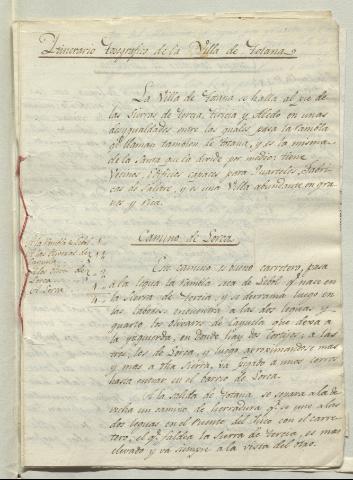 Itinerario Topografico de la Villa de Totana
La Villa de Totana se halla al pie de
las Sierras de Tercia y Aledo en unas
desigualdades entre las quales pasa la rambla
q.e llaman tambien de Totana, y es la misma
de la Santa que la divide por medio: tiene
Vecinos, Edificios capaces para Quarteles, Fabri-
cas de Salitre, y es una Villa abundante en gra-
nos y rica.
Camino de Lorca
Este camino es bueno carretero, pasa
á la legua la rambla seca de Lebor q.e nace en
la Sierra de Tercia, y se derrama luego en
las labores: encuentra á las dos leguas y
quarto los olivares de que dexa á
la yzquierda, en donde hay dos cortijos; á las
tres, los de Lorca, y luego aproximandose mas
y mas á dha Sierra, va pegado á unos cerros
hasta entrar en el barrio de Lorca.
A la salida de Totana se separa a la de-
recha un camino de herradura q.e se une á las
dos leguas en el Puente del Rico con el carre-
tero, el q.e faldea la Sierra de Tercia, es mas
elevado y va siempre á la vista del otro.
A la rambla Lebor 1
A los
A Lorca